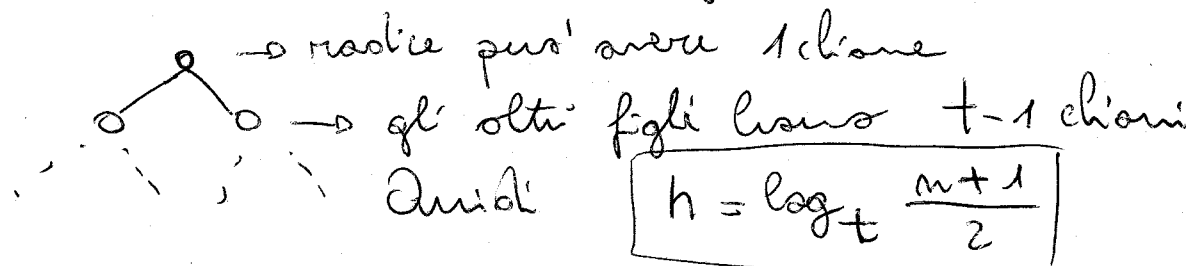 → radice puo' avere 1 chiave
→ gli altri figli hanno t-1 chiavi
Quindi h = log_t (n+1)/2